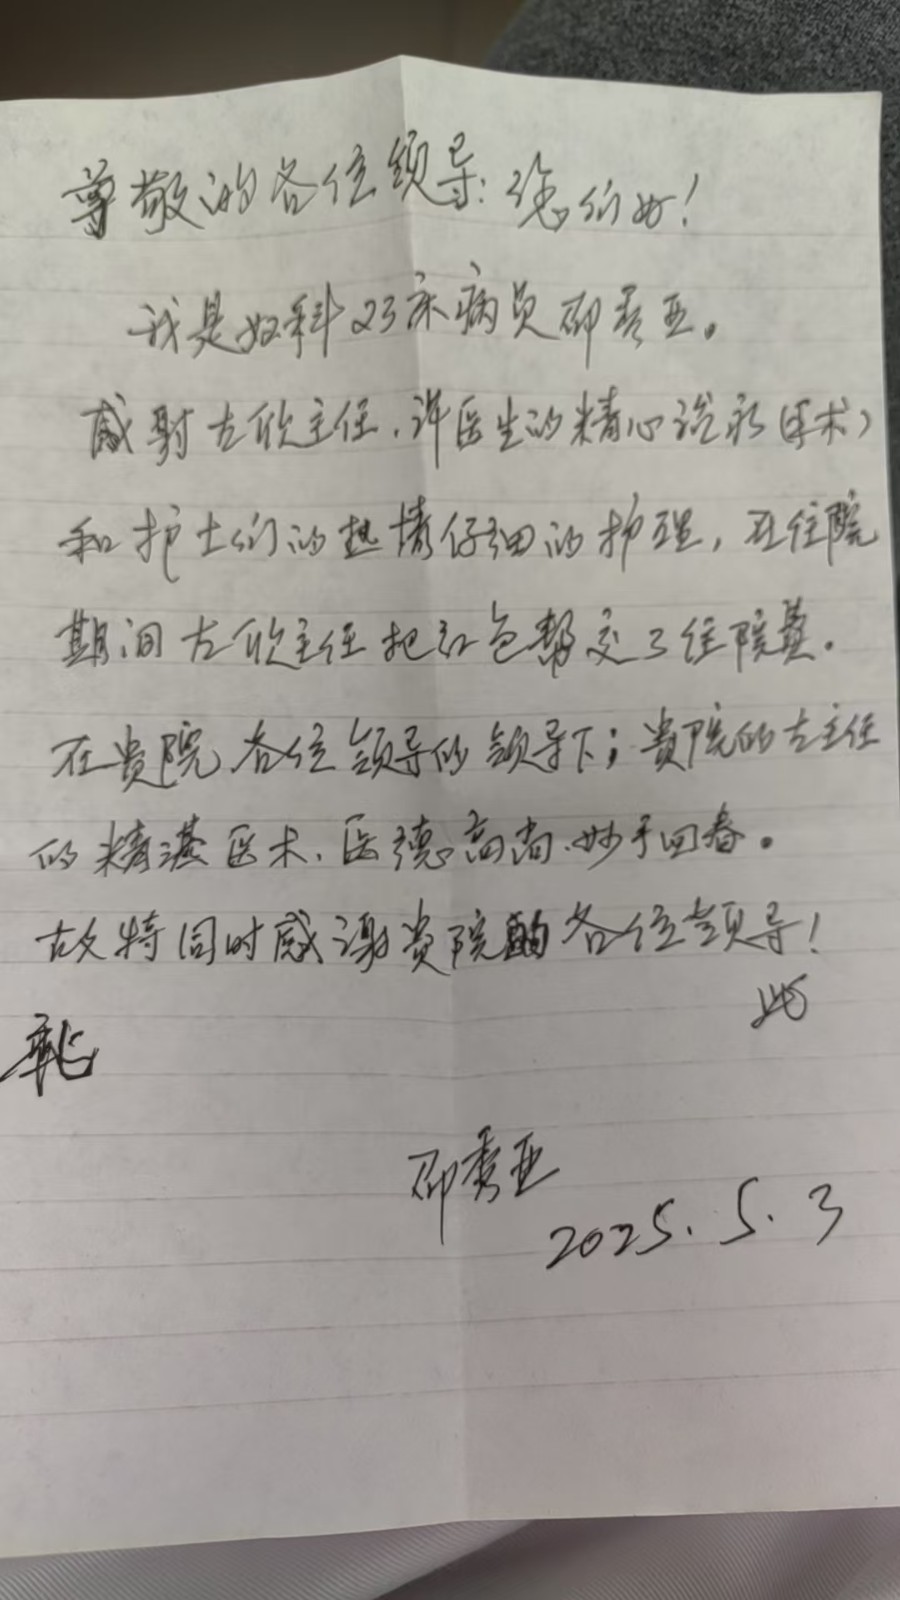 尊敬的各位领导：您们好！
我是妇科23床病员邵秀亚。
感谢左欣主任、许医生的精心治疗（手术）
和护士们的热情仔细的护理，在住院
期间左欣主任把红包帮交了住院费。
在贵院各位领导的领导下；贵院的左主任
的精湛医术、医德高尚、妙手回春。
故特同时感谢贵院的各位领导！
此
邵秀亚
2025.5.3